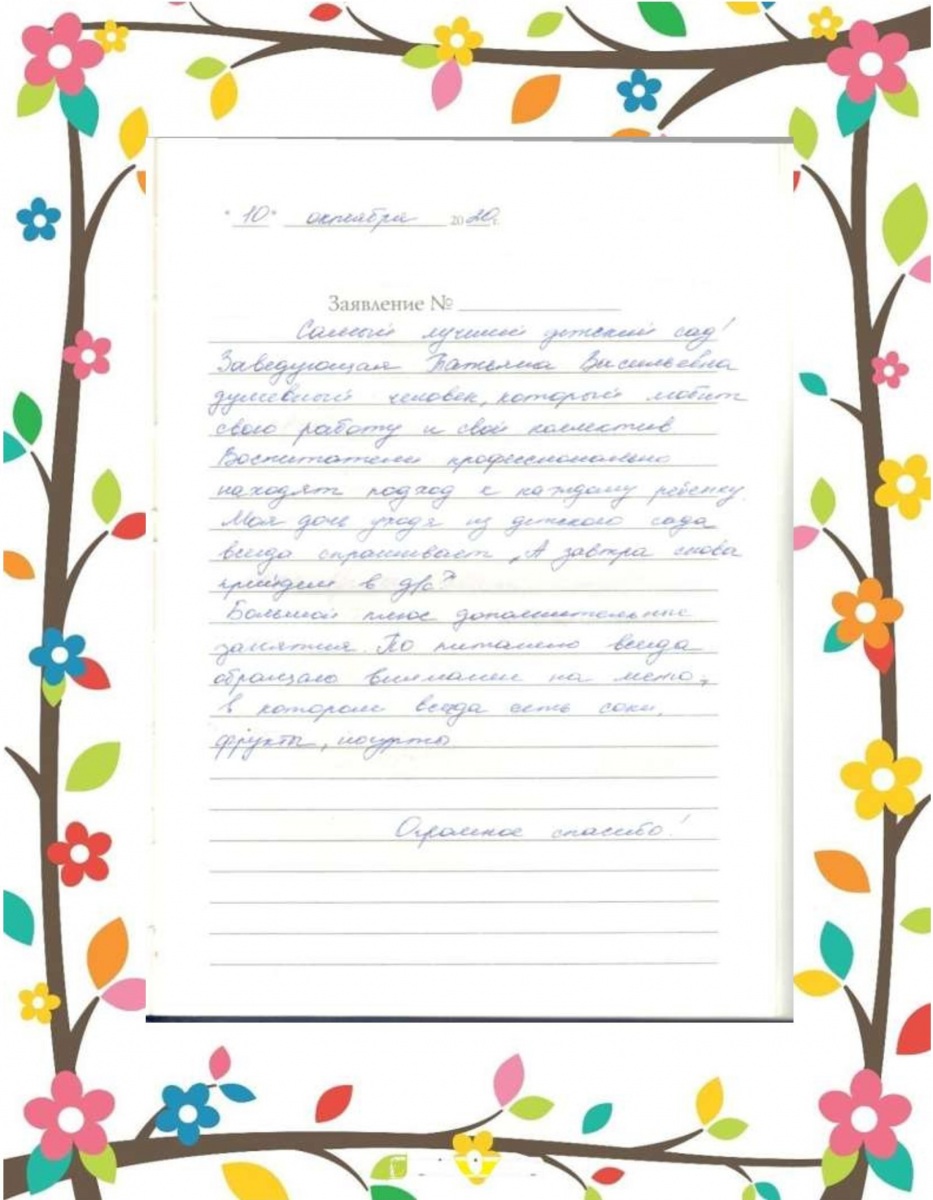 "10" октября 2020г.
Заявление №
Самый лучший детский сад!
Заведующая Татьяна Васильевна
душевный человек, который любит
свою работу и свой коллектив.
Воспитатели профессионально
находят подход к каждому ребенку.
Моя дочь уходя из детского сада
всегда спрашивает „А завтра снова
прийдем в д/с?"
Большой плюс дополнительные
занятия. По питанию всегда
обращаю внимание на меню,
в котором всегда есть соки,
фрукты, йогурты.
Огромное спасибо!